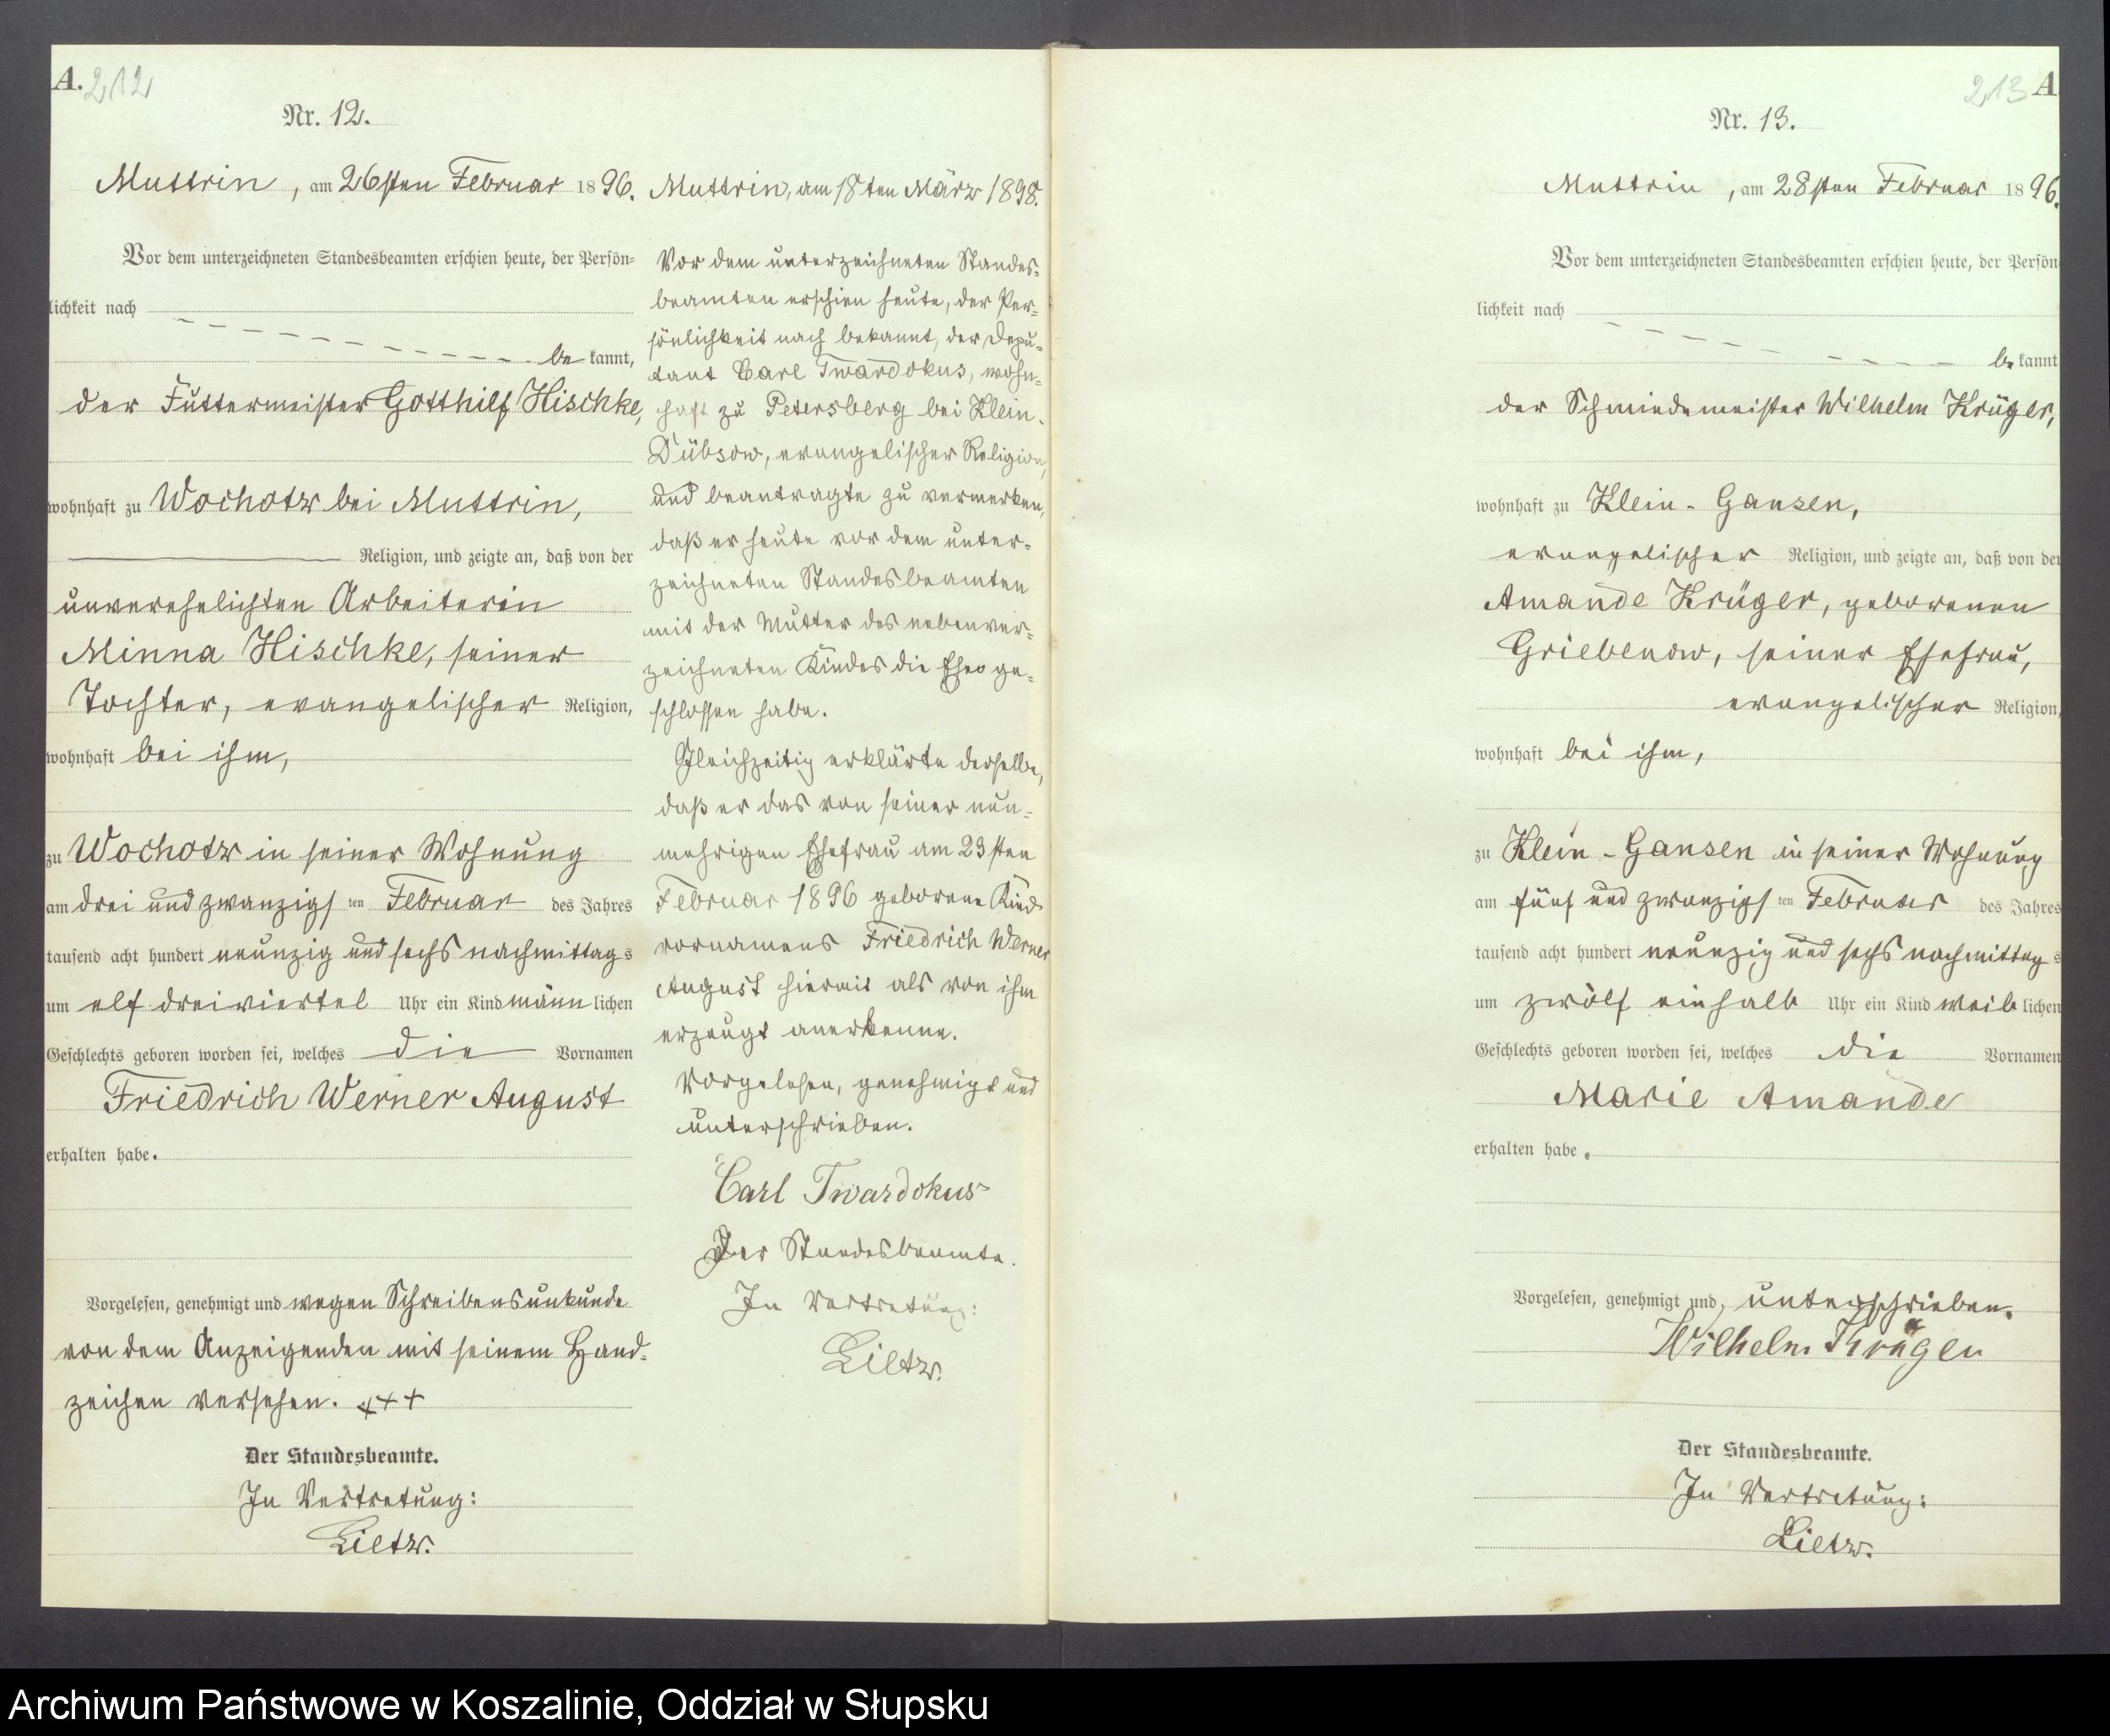 A. 212
Nr. 12.
Muttrin, am 26sten Februar 1896.
Vor dem unterzeichneten Standesbeamten erschien heute, der Persön-
lichkeit nach
be kannt,
der Futtermeister Gotthilf Hischke,
wohnhaft zu Wochotz bei Muttrin,
Religion, und zeigte an, daß von der
unverehelichten Arbeiterin
Minna Hischke, seiner
Tochter, evangelischer Religion,
wohnhaft bei ihm,
zu Wochotz in seiner Wohnung
am drei und zwanzigsten Februar des Jahres
tausend acht hundert neunzig und sechs nachmittags
um elf dreiviertel Uhr ein Kind männlichen
Geschlechts geboren worden sei, welches die Vornamen
Friedrich Werner August
erhalten habe.
Vorgelesen, genehmigt und wegen Schreibensunkunde
von dem Anzeigenden mit seinem Hand-
zeichen versehen. +++
Der Standesbeamte.
In Vertretung:
Lietz.
Muttrin, am 18ten März 1898.
Vor dem unterzeichneten Standes-
beamten erschien heute, der Per-
sönlichkeit nach bekannt, der Depu-
tant Carl Twardokus, wohn-
haft zu Petersberg bei Klein-
Dübsow, evangelischer Religion,
und beantragte zu vermerken,
daß er heute vor dem unter-
zeichneten Standesbeamten
mit der Mutter des nebenver-
zeichneten Kindes die Ehe ge-
schlossen habe.
Gleichzeitig erklärte derselbe,
daß er das von seiner nun-
mehrigen Ehefrau am 23sten
Februar 1896 geborene Kind
vornamens Friedrich Werner
August hiermit als von ihm
erzeugt anerkenne.
Vorgelesen, genehmigt und
unterschrieben.
Carl Twardokus
Der Standesbeamte.
In Vertretung:
Lietz.
213 A
Nr. 13.
Muttrin, am 28sten Februar 1896.
Vor dem unterzeichneten Standesbeamten erschien heute, der Persön
lichkeit nach
be kannt
der Schmiedemeister Wilhelm Krüger,
wohnhaft zu Klein-Gansen,
evangelischer Religion, und zeigte an, daß von der
Amande Krüger, geborenen
Griebenow, seiner Ehefrau,
evangelischer Religion,
wohnhaft bei ihm,
zu Klein-Gansen in seiner Wohnung
am fünf und zwanzigsten Februar des Jahres
tausend acht hundert neunzig und sechs nachmittags
um zwölf einhalb Uhr ein Kind weiblichen
Geschlechts geboren worden sei, welches die Vornamen
Marie Amande
erhalten habe.
Vorgelesen, genehmigt und unterschrieben.
Wilhelm Krüger
Der Standesbeamte.
In Vertretung:
Lietz.
Archiwum Państwowe w Koszalinie, Oddział w Słupsku